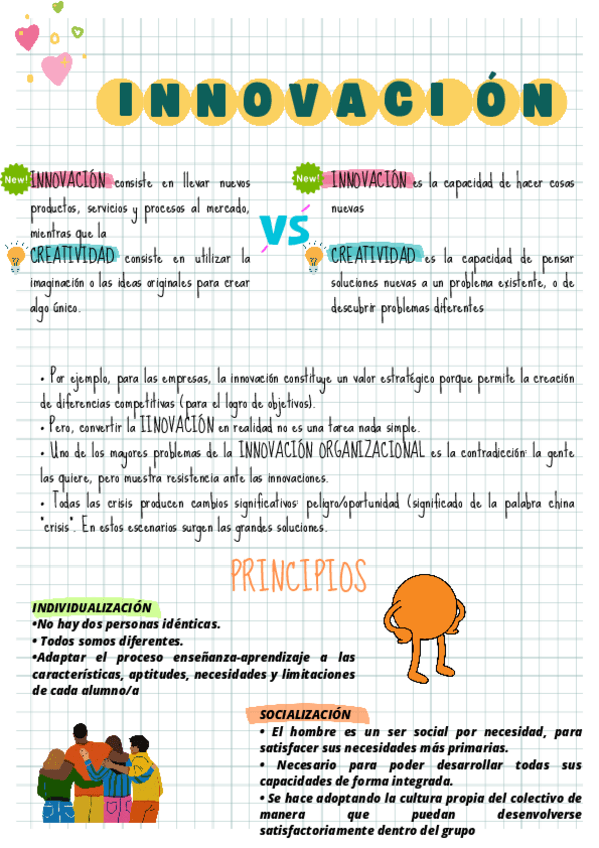 INNOVACIÓN
New! INNOVACIÓN consiste en llevar nuevos
productos, servicios y procesos al mercado,
mientras que la
CREATIVIDAD consiste en utilizar la
imaginación o las ideas originales para crear
algo único.
VS
New! INNOVACIÓN es la capacidad de hacer cosas
nuevas
CREATIVIDAD es la capacidad de pensar
soluciones nuevas a un problema existente, o de
descubrir problemas diferentes
• Por ejemplo, para las empresas, la innovación constituye un valor estratégico porque permite la creación
de diferencias competitivas (para el logro de objetivos).
• Pero, convertir la IINOVACIÓN en realidad no es una tarea nada simple.
• Uno de los mayores problemas de la INNOVACIÓN ORGANIZACIONAL es la contradicción: la gente
las quiere, pero muestra resistencia ante las innovaciones.
• Todas las crisis producen cambios significativos: peligro/oportunidad (significado de la palabra china
"crisis". En estos escenarios surgen las grandes soluciones.
PRINCIPIOS
INDIVIDUALIZACIÓN
•No hay dos personas idénticas.
• Todos somos diferentes.
•Adaptar el proceso enseñanza-aprendizaje a las
características, aptitudes, necesidades y limitaciones
de cada alumno/a
SOCIALIZACIÓN
• El hombre es un ser social por necesidad, para
satisfacer sus necesidades más primarias.
• Necesario para poder desarrollar todas sus
capacidades de forma integrada.
• Se hace adoptando la cultura propia del colectivo de
manera que puedan desenvolverse
satisfactoriamente dentro del grupo